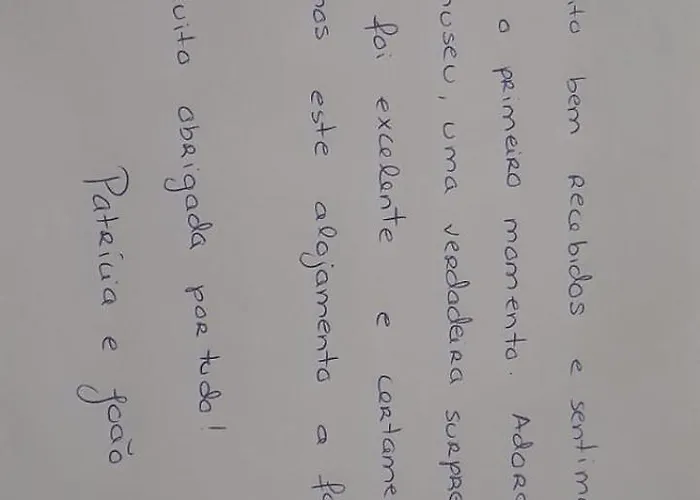 ito bem recebidos e sentim
o primeiro momento. Ador
museu, uma verdadeira surpre
foi excelente e certame
mos este alojamento a fa
uito obrigada por tudo!
Patrícia e João